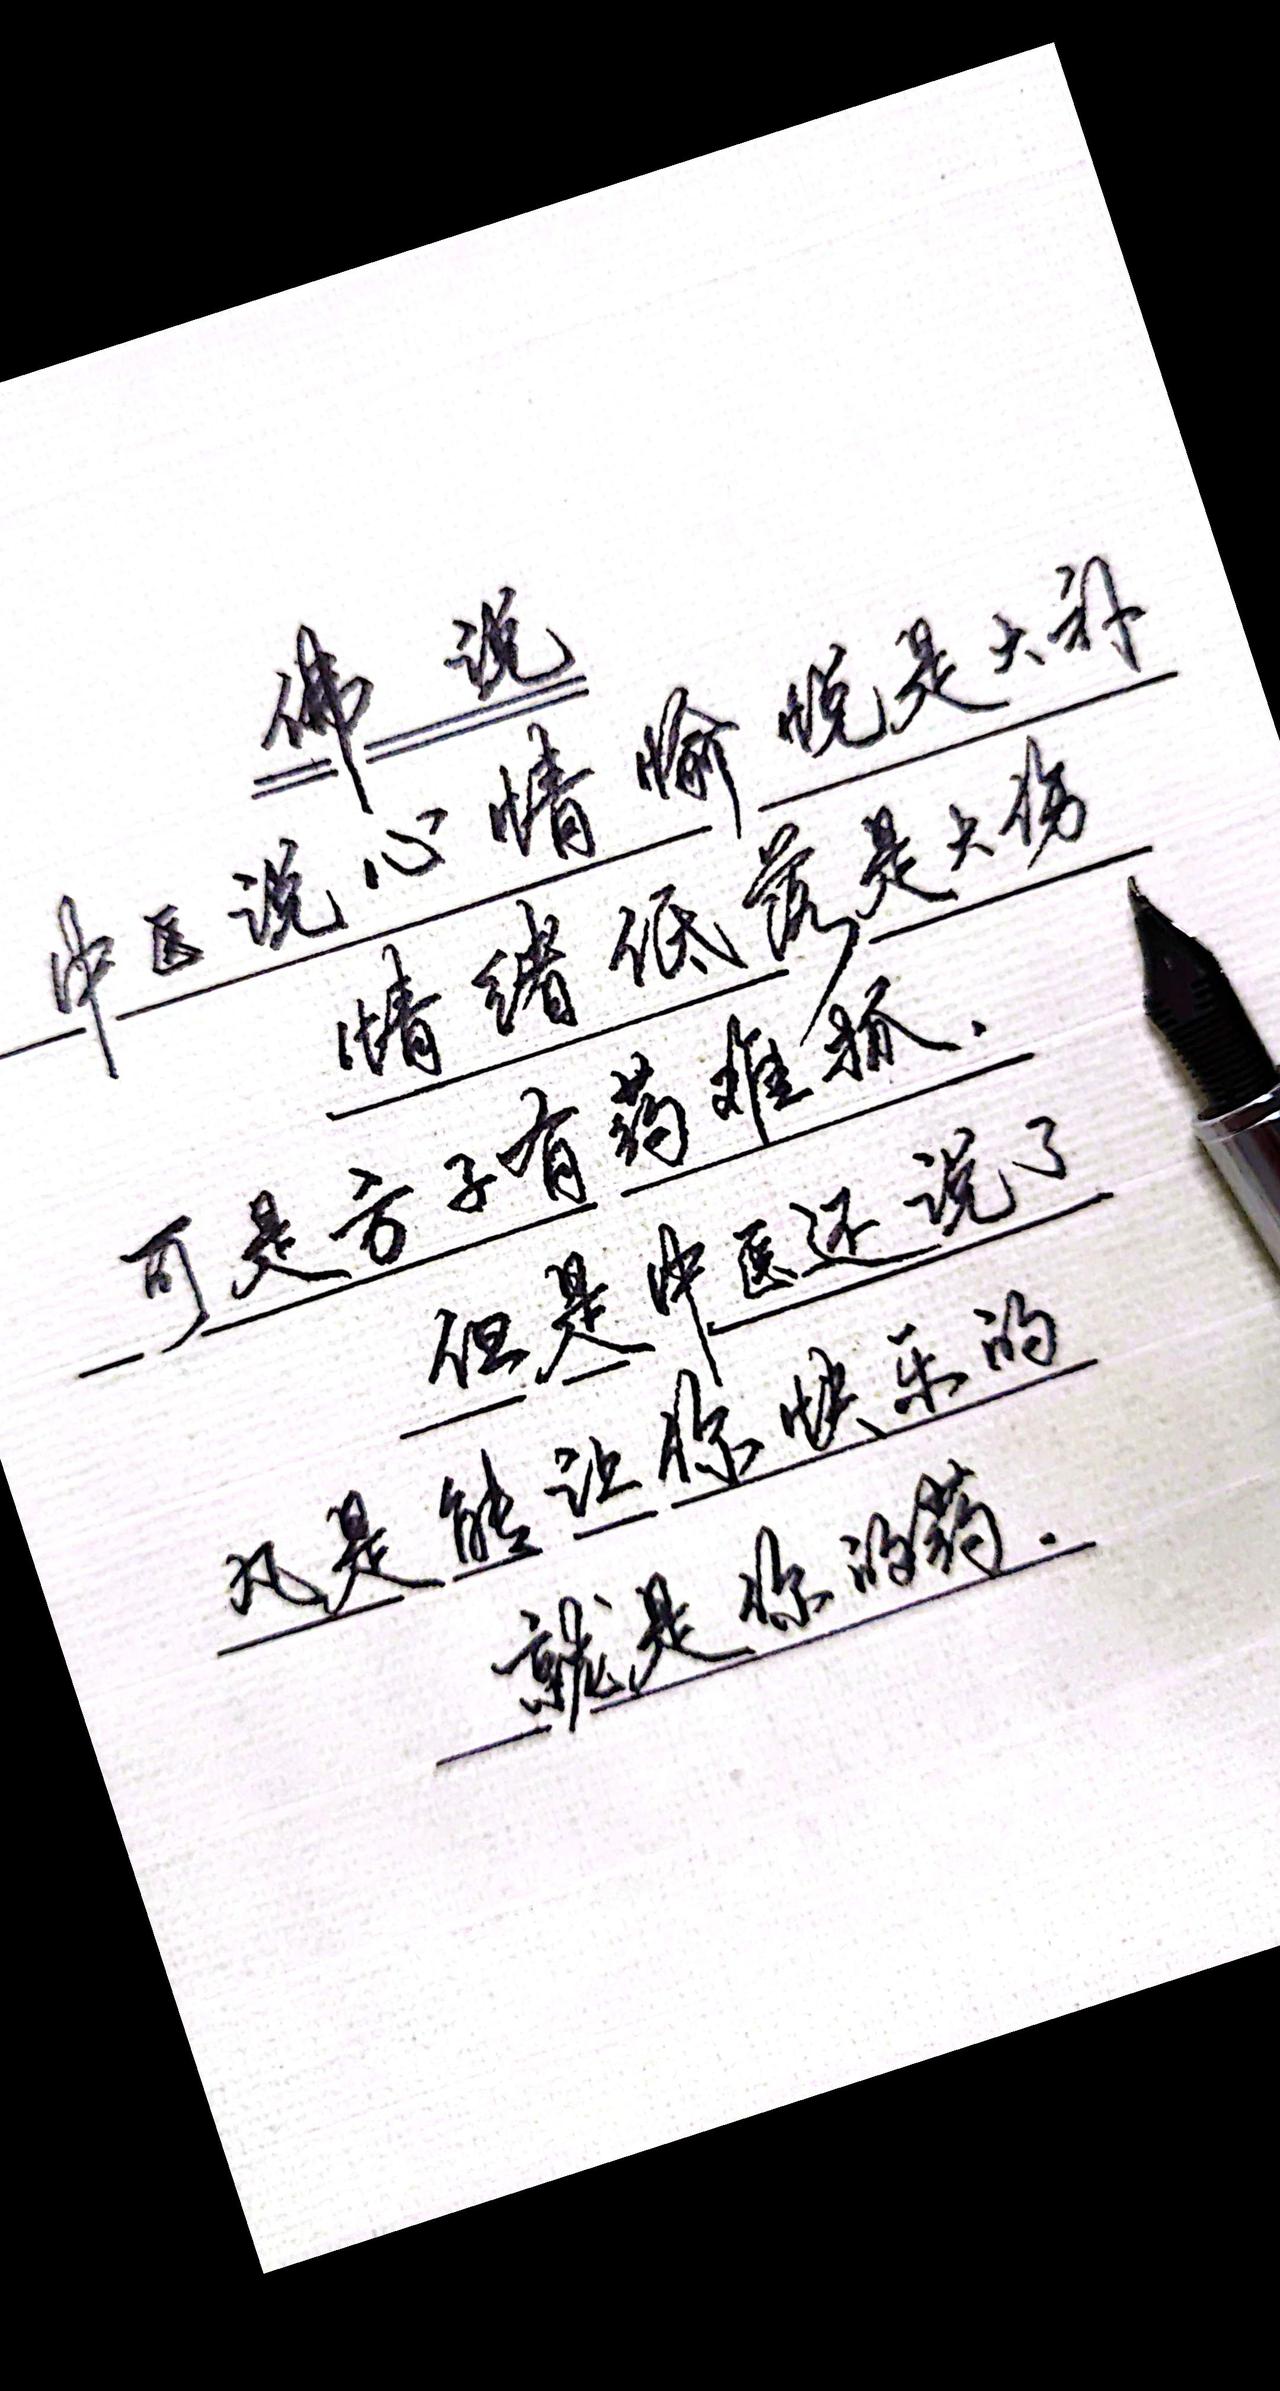 佛说
中医说心情愉悦是大补
情绪低落是大伤
可是方子有药难抓.
但是中医还说了
凡是能让你快乐的
就是你的药.